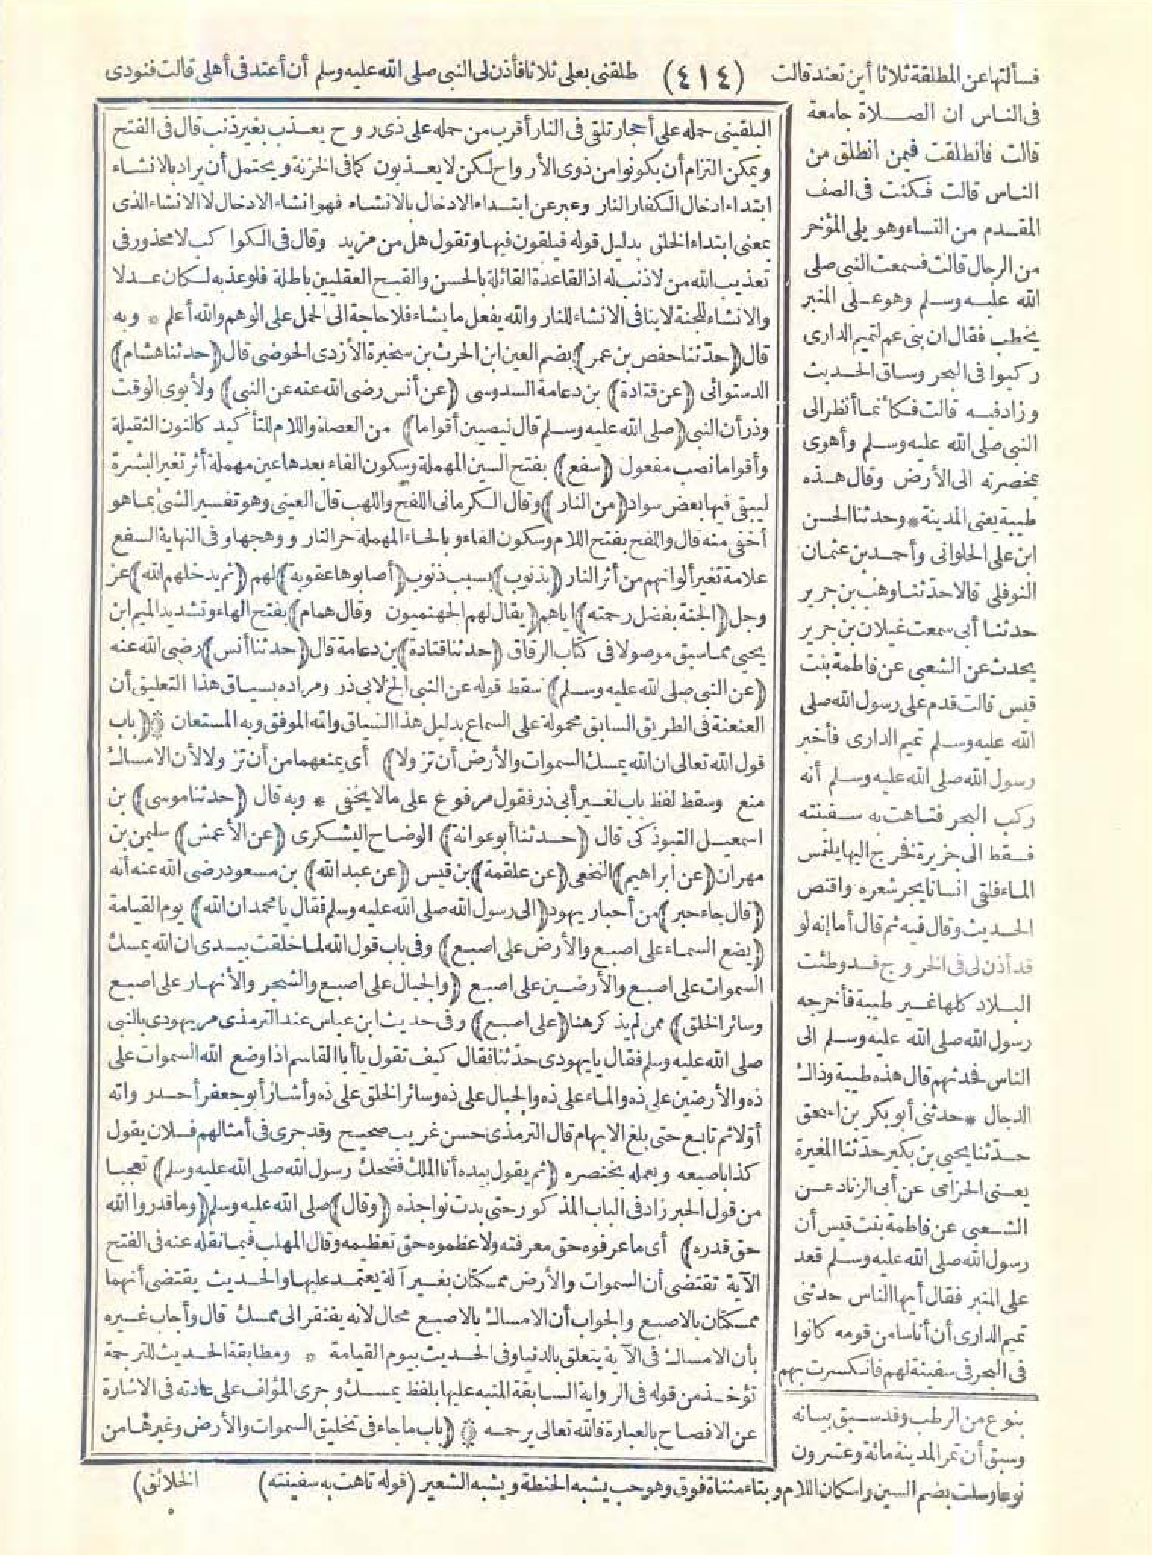 فسألتها عن المطلقة ثلاثا أين تعتد قالت (٤١٤) طلقنى بعلى ثلاثا فأذن لى النبى صلى الله عليه وسلم أن أعتد فى أهلى قالت فنودى
فى الناس ان الصلاة جامعة
قالت فانطلقت فيمن انطلق من
الناس قالت فكنت فى الصف
المقدم من النساء وهو يلى المؤخر
من الرجال قالت فسمعت النبى صلى
الله عليه وسلم وهو على المنبر
يخطب فقال ان بنى عم لتميم الدارى
ركبوا فى البحر وساق الحديث
وزاد فيه قالت فكأنما أنظر الى
النبى صلى الله عليه وسلم وأهوى
بمخصرته الى الأرض وقال هذه
طيبة يعنى المدينة * وحدثنا الحسن
ابن على الحلوانى وأحمد بن عثمان
النوفلى قالا حدثنا وهب بن جرير
حدثنا أبى سمعت غيلان بن جرير
يحدث عن الشعبى عن فاطمة بنت
قيس قالت قدم على رسول الله صلى
الله عليه وسلم تميم الدارى فأخبر
رسول الله صلى الله عليه وسلم أنه
ركب البحر فتاهت به سفينته
فسقط الى جزيرة فخرج اليها يلتمس
الماء فلقى انسانا يجر شعره واقتص
الحديث وقال فيه ثم قال أما إنه لو
قد أذن لى فى الخروج قد وطئت
البلاد كلها غير طيبة فأخرجه
رسول الله صلى الله عليه وسلم الى
الناس فحدثهم قال هذه طيبة وذاك
الدجال * حدثنى أبو بكر بن اسحق
حدثنا يحيى بن بكير حدثنا المغيرة
يعنى الحزامى عن أبى الزناد عن
الشعبى عن فاطمة بنت قيس أن
رسول الله صلى الله عليه وسلم قعد
على المنبر فقال أيها الناس حدثنى
تميم الدارى أن أناسا من قومه كانوا
فى البحر فى سفينة لهم فانكسرت بهم
بنوع من الرطب وقد سبق بيانه
وسبق أن تمر المدينة مائة وعشرون
نوعا وسلت بضم السين واسكان اللام وبتاء مثناة فوق وهو حب يشبه الحنطة ويشبه الشعير (قوله تاهت به سفينته)
البلقينى حمله على أحجار تلقى فى النار أقرب من حمله على ذى روح يعذب بغير ذنب قال فى الفتح
ويمكن التزام أن يكونوا من ذوى الأرواح لكن لا يعذبون كما فى الخزنة ويحتمل أن يراد بالانشاء
ابتداء ادخال الكفار النار وعبر عن ابتداء الادخال بالانشاء فهو انشاء الادخال لا الانشاء الذى
بمعنى ابتداء الخلق بدليل قوله فيلقون فيها وتقول هل من مزيد وقال فى الكواكب لا محذور فى
تعذيب الله من لا ذنب له اذ القاعدة القائلة بالحسن والقبح العقليين باطلة فلو عذبه لكان عدلا
والانشاء للجنة لا ينافى الانشاء للنار والله يفعل ما يشاء فلا حاجة الى الحمل على الوهم والله أعلم * وبه
قال (حدثنا حفص بن عمر) بضم العين ابن الحرث بن سخبرة الأزدى الحوضى قال (حدثنا هشام)
الدستوائى (عن قتادة) بن دعامة السدوسى (عن أنس رضى الله عنه عن النبى) ولأبوى الوقت
وذر أن النبى (صلى الله عليه وسلم قال ليصيبن أقواما) من العصاة واللام للتأكيد كالنون الثقيلة
وأقواما نصب مفعول (سفع) بفتح السين المهملة وسكون الفاء بعدها عين مهملة أثر تغير البشرة
ليبقى فيها بعض سواد (من النار) وقال الكرمانى اللفح واللهب قال العينى وهو تفسير الشئ بما هو
أخفى منه قال واللفح بفتح اللام وسكون الفاء وبالحاء المهملة حر النار ووهجها وفى النهاية السفع
علامة تغير ألوانهم من أثر النار (بذنوب) بسبب ذنوب (أصابوها عقوبة) لهم (ثم يدخلهم الله) عز
وجل (الجنة بفضل رحمته) اياهم (يقال لهم الجهنميون وقال همام) بفتح الهاء وتشديد الميم ابن
يحيى مما سبق موصولا فى كتاب الرقاق (حدثنا قتادة) بن دعامة قال (حدثنا أنس) رضى الله عنه
(عن النبى صلى الله عليه وسلم) سقط قوله عن النبى الخ لابى ذر ومراده بسياق هذا التعليق أن
العنعنة فى الطريق السابق محمولة على السماع بدليل هذا السياق والله الموفق وبه المستعان (باب
قول الله تعالى ان الله يمسك السموات والأرض أن تزولا) أى يمنعهما من أن تزولا لأن الامساك
منع وسقط لفظ باب لغير أبى ذر فقول مرفوع على ما لا يخفى * وبه قال (حدثنا موسى) بن
اسمعيل التبوذكى قال (حدثنا أبو عوانة) الوضاح اليشكرى (عن الأعمش) سليمن بن
مهران (عن ابراهيم) النخعى (عن علقمة) بن قيس (عن عبد الله) بن مسعود رضى الله عنه أنه
(قال جاء حبر) من أحبار يهود (الى رسول الله صلى الله عليه وسلم فقال يا محمد ان الله) يوم القيامة
(يضع السماء على اصبع والأرض على اصبع) وفى باب قول الله لما خلقت بيدى ان الله يمسك
السموات على اصبع والأرضين على اصبع (والجبال على اصبع والشجر والأنهار على اصبع
وسائر الخلق) ممن لم يذكر هنا (على اصبع) وفى حديث ابن عباس عند الترمذى مر يهودى بالنبى
صلى الله عليه وسلم فقال يا يهودى حدثنا فقال كيف تقول يا أبا القاسم اذا وضع الله السموات على
ذه والأرضين على ذه والماء على ذه والجبال على ذه وسائر الخلق على ذه وأشار أبو جعفر أحد رواته
أولا ثم تابع حتى بلغ الابهام قال الترمذى حسن غريب صحيح وقد جرى فى أمثالهم فلان يقول
كذا باصبعه ويعمله بخنصره (ثم يقول بيده أنا الملك فضحك رسول الله صلى الله عليه وسلم) تعجبا
من قول الحبر زاد فى الباب المذكور حتى بدت نواجذه (وقال) صلى الله عليه وسلم (وما قدروا الله
حق قدره) أى ما عرفوه حق معرفته ولا عظموه حق تعظيمه وقال المهلب فيما نقله عنه فى الفتح
الآية تقتضى أن السموات والأرض ممسكتان بغير آلة يعتمد عليها والحديث يقتضى أنهما
ممسكتان بالاصبع والجواب أن الامساك بالاصبع محال لأنه يفتقر الى ممسك قال وأجاب غيره
بأن الامساك فى الآية يتعلق بالدنيا وفى الحديث بيوم القيامة * ومطابقة الحديث للترجمة
تؤخذ من قوله فى الرواية السابقة المنبه عليها بلفظ يمسك وجرى المؤلف على عادته فى الاشارة
عن الافصاح بالعبارة فالله تعالى يرحمه (باب ما جاء فى تخليق السموات والأرض وغيرها من
الخلائق)